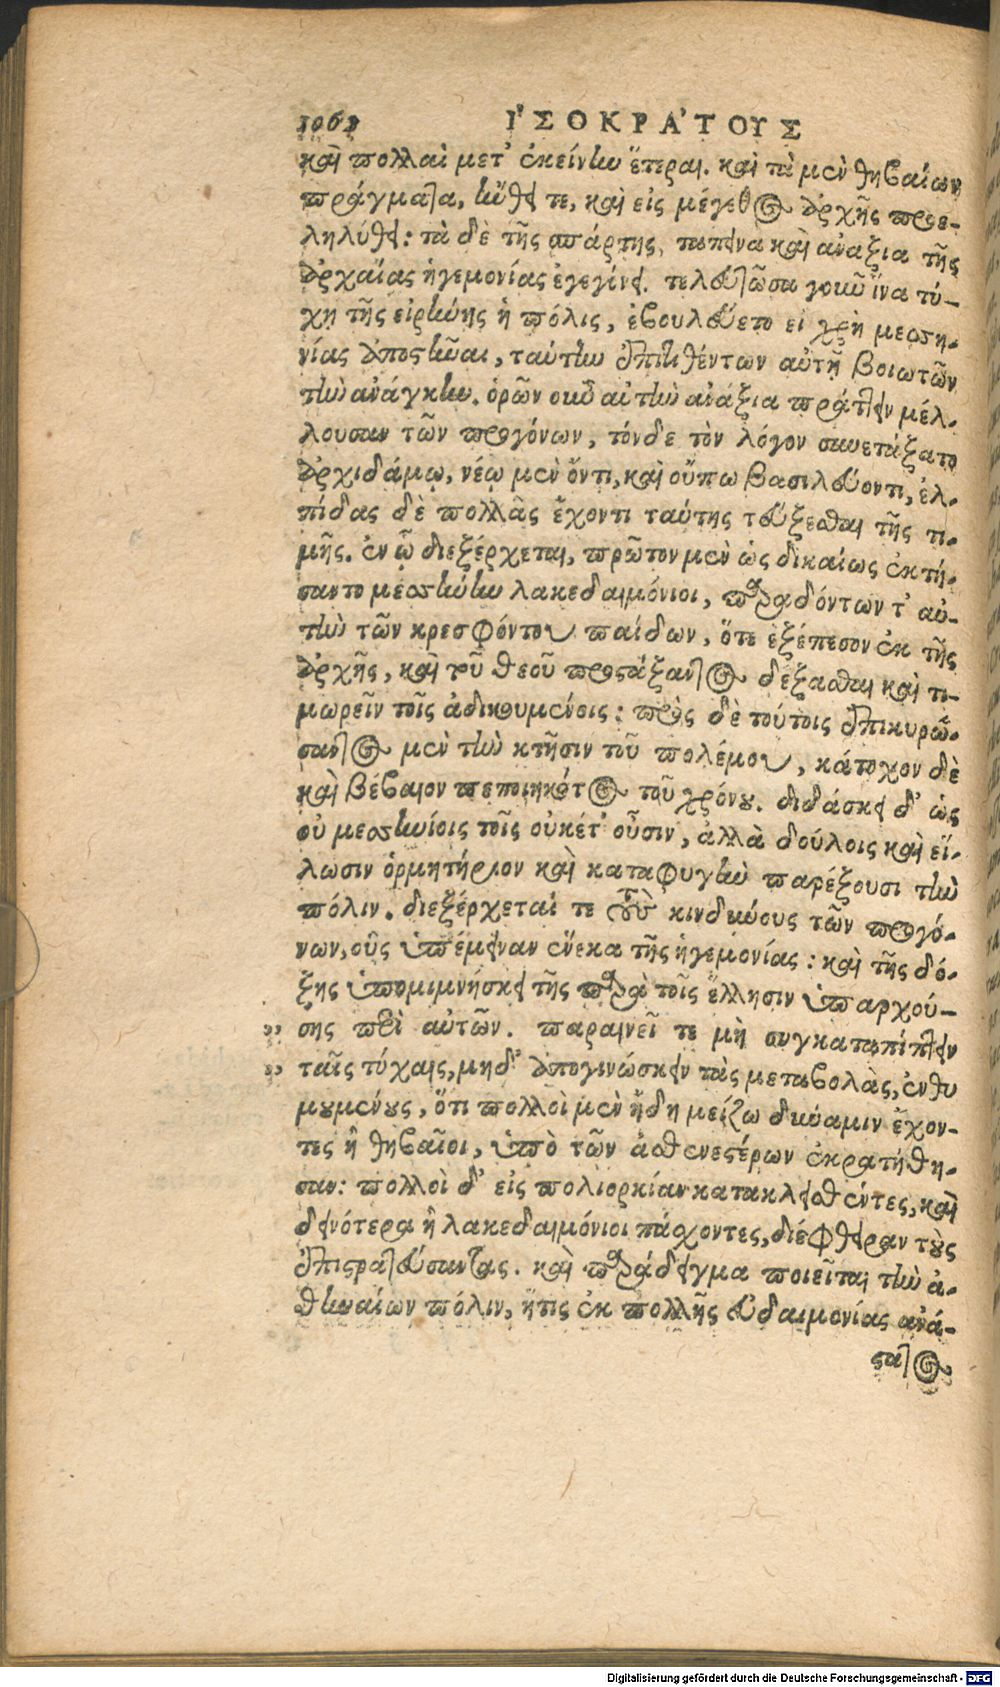 1061 ἸΣΟΚΡΆΤΟΥΣ
καὶ πολλαὶ μετ' ἐκείνην ἕτεραι. καὶ τὰ μὲν θηβαίων
πράγματα, ηὔθει τε, καὶ εἰς μέγεθος ἀρχῆς προε-
ληλύθει: τὰ δὲ τῆς σπάρτης, ταπεινὰ καὶ ἀνάξια τῆς
ἀρχαίας ἡγεμονίας ἐγεγίνει. τελευτῶσα γοῦν ἵνα τύ-
χῃ τῆς εἰρήνης ἡ πόλις, ἐβουλεύετο εἰ χρὴ μεσση-
νίας ἀποστῆναι, ταύτην ἐπιτιθέντων αὐτῇ βοιωτῶν
τὴν ἀνάγκην. ὁρῶν οὖν αὐτὴν ἀνάξια πράττειν μέλ-
λουσαν τῶν προγόνων, τόνδε τὸν λόγον συνετάξατο
ἀρχιδάμῳ, νέῳ μὲν ὄντι, καὶ οὔπω βασιλεύοντι, ἐλ-
πίδας δὲ πολλὰς ἔχοντι ταύτης τεύξεσθαι τῆς τι-
μῆς. ἐν ᾧ διεξέρχεται, πρῶτον μὲν ὡς δικαίως ἐκτή-
σαντο μεσσήνην λακεδαιμόνιοι, παραδόντων τ' αὐ-
τὴν τῶν κρεσφόντου παίδων, ὅτε ἐξέπεσον ἐκ τῆς
ἀρχῆς, καὶ τοῦ θεοῦ προστάξαντος δέξασθαι καὶ τι-
μωρεῖν τοῖς ἀδικουμένοις: πρὸς δὲ τούτοις ἐπικυρώ-
σαντος μὲν τὴν κτῆσιν τοῦ πολέμου, κάτοχον δὲ
καὶ βέβαιον πεποιηκότος τοῦ χρόνου. διδάσκει δ' ὡς
οὐ μεσσηνίοις τοῖς οὐκέτ' οὖσιν, ἀλλὰ δούλοις καὶ εἵ-
λωσιν ὁρμητήριον καὶ καταφυγὴν παρέξουσι τὴν
πόλιν. διεξέρχεταί τε τοὺς κινδύνους τῶν προγό-
νων, οὓς ὑπέμειναν ἕνεκα τῆς ἡγεμονίας: καὶ τῆς δό-
ξης ὑπομιμνήσκει τῆς παρὰ τοῖς ἕλλησιν ὑπαρχού-
„ σης περὶ αὐτῶν. παραινεῖ τε μὴ συγκαταπίπτειν
„ ταῖς τύχαις, μηδ' ἀπογινώσκειν τὰς μεταβολὰς, ἐνθυ
μουμένους, ὅτι πολλοὶ μὲν ἤδη μείζω δύναμιν ἔχον-
τες ἢ θηβαῖοι, ὑπὸ τῶν ἀσθενεστέρων ἐκρατήθη-
σαν: πολλοὶ δ' εἰς πολιορκίαν κατακλεισθέντες, καὶ
δεινότερα ἢ λακεδαιμόνιοι πάσχοντες, διέφθειραν τοὺς
ἐπιστρατεύσαντας. καὶ παράδειγμα ποιεῖται τὴν ἀ-
θηναίων πόλιν, ἥτις ἐκ πολλῆς εὐδαιμονίας ἀνά-
στατος
Digitalisierung gefördert durch die Deutsche Forschungsgemeinschaft - DFG